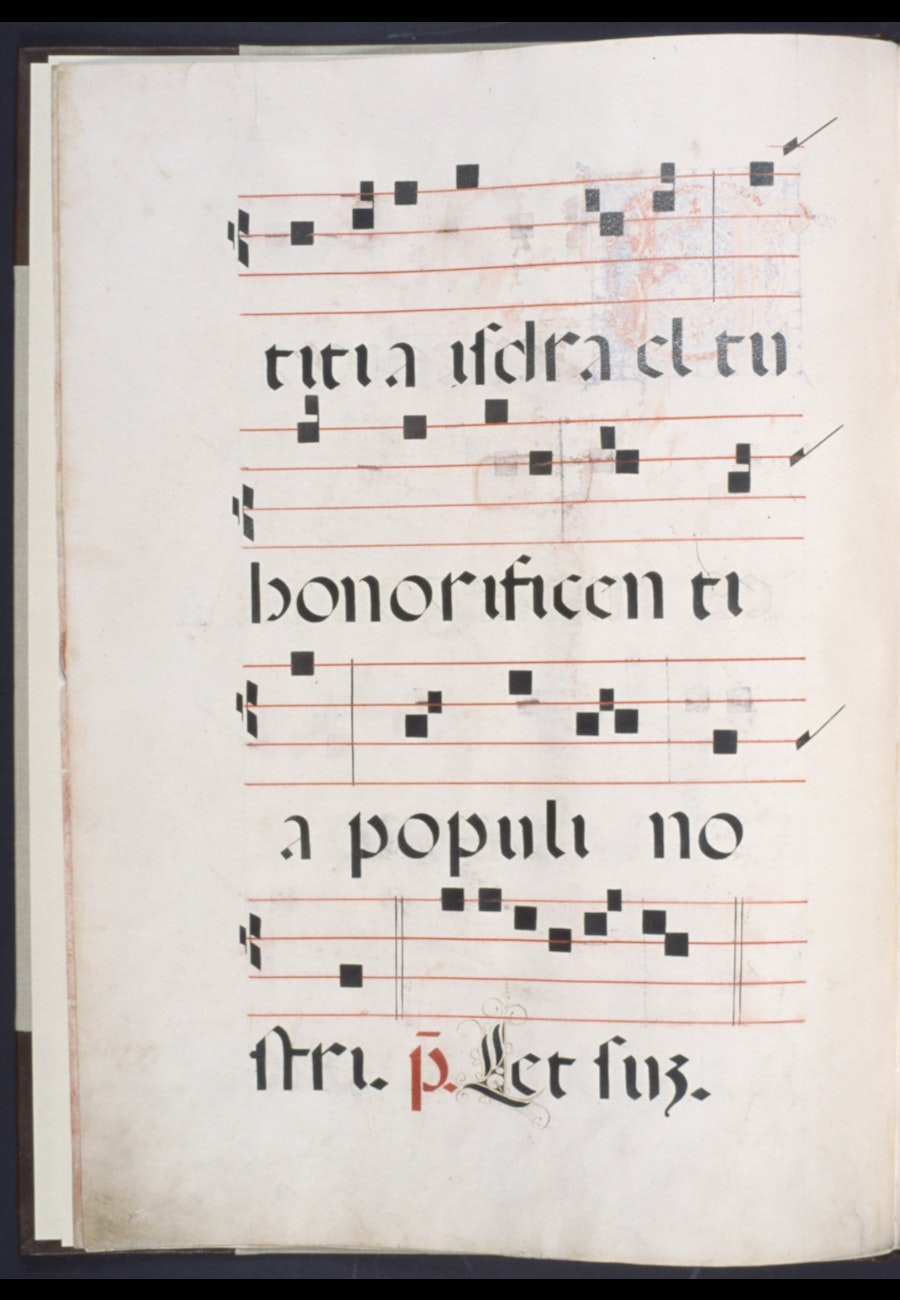 titia isdra el tu
honorificen ti
a populi no
stri. p̄. Let suʒ.